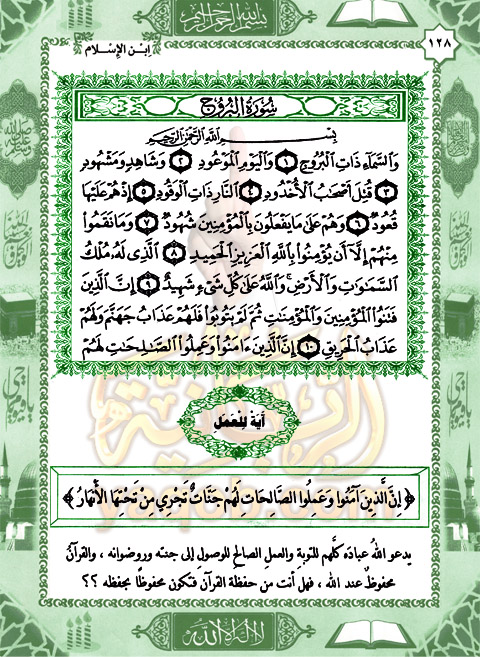 بسم الله الرحمن الرحيم
ابن الإسلام
١٢٨
سُورَةُ البُرُوجِ
بِسْمِ اللَّهِ الرَّحْمَٰنِ الرَّحِيمِ
وَالسَّمَآءِ ذَاتِ الْبُرُوجِ ١ وَالْيَوْمِ الْمَوْعُودِ ٢ وَشَاهِدٍ وَمَشْهُودٍ
٣ قُتِلَ أَصْحَٰبُ الْأُخْدُودِ ٤ النَّارِ ذَاتِ الْوَقُودِ ٥ إِذْ هُمْ عَلَيْهَا
قُعُودٌ ٦ وَهُمْ عَلَىٰ مَا يَفْعَلُونَ بِالْمُؤْمِنِينَ شُهُودٌ ٧ وَمَا نَقَمُوا
مِنْهُمْ إِلَّآ أَن يُؤْمِنُوا بِاللَّهِ الْعَزِيزِ الْحَمِيدِ ٨ الَّذِى لَهُ مُلْكُ
السَّمَٰوَٰتِ وَالْأَرْضِ ۚ وَاللَّهُ عَلَىٰ كُلِّ شَىْءٍ شَهِيدٌ ٩ إِنَّ الَّذِينَ
فَتَنُوا الْمُؤْمِنِينَ وَالْمُؤْمِنَٰتِ ثُمَّ لَمْ يَتُوبُوا فَلَهُمْ عَذَابُ جَهَنَّمَ وَلَهُمْ
عَذَابُ الْحَرِيقِ ١٠ إِنَّ الَّذِينَ ءَامَنُوا وَعَمِلُوا الصَّٰلِحَٰتِ لَهُمْ
آيَةٌ لِلْعَمَلِ
﴿ إِنَّ الَّذِينَ آمَنُوا وَعَمِلُوا الصَّالِحَاتِ لَهُمْ جَنَّاتٌ تَجْرِي مِنْ تَحْتِهَا الْأَنْهَارُ ﴾
يدعو اللهُ عبادَه كلَّهم للتوبةِ والعملِ الصالحِ للوصول إلى جنته ورضوانه ، والقرآنُ
محفوظٌ عند الله ، فهل أنت من حفظة القرآن فتكون محفوظًا بحفظه ؟؟
لا إله إلا الله